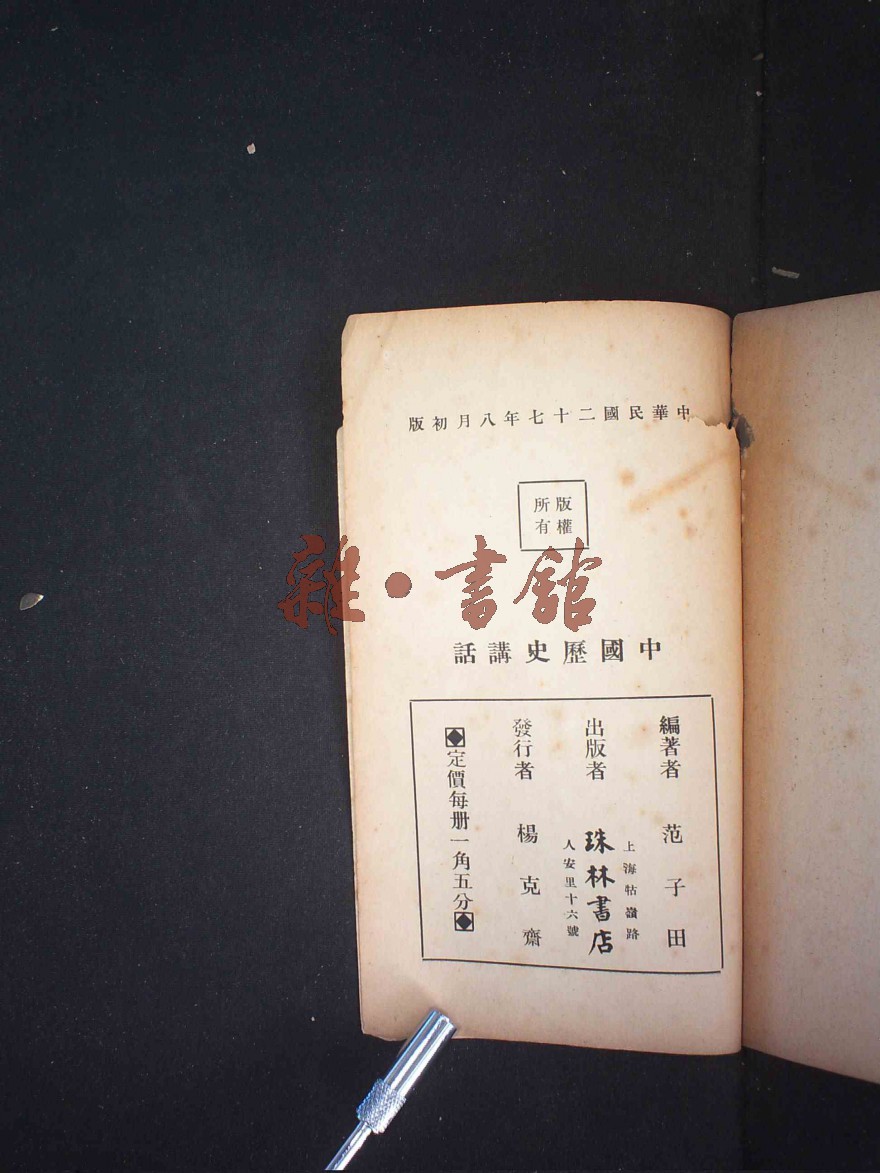 中華民國二十七年八月初版
版權
所有
雜·書館
中國歷史講話
編著者 范子田
上海牯嶺路
出版者 珠林書店
人安里十六號
發行者 楊克齋
◆定價每册一角五分◆